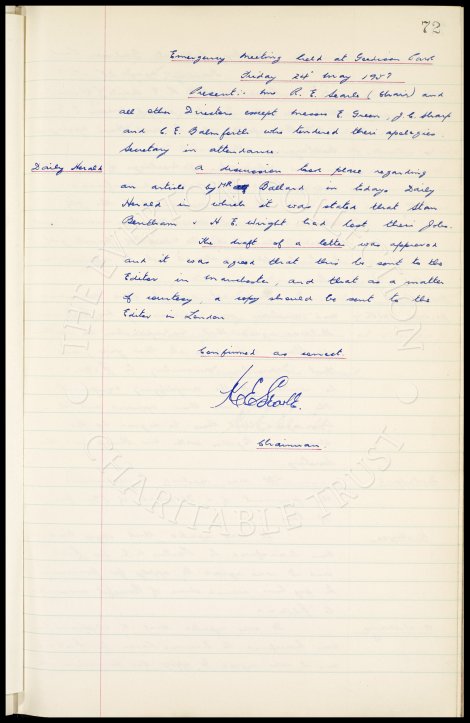 72
Emergency Meeting held at Goodison Park
Friday 24th May 1957
Present:- Mr R. E. Searle (Chair) and
all other Directors except Messrs E Green, J. C. Sharp
and C. E. Balmforth who tendered their apologies.
Secretary in attendance.
Daily Herald
A discussion took place regarding
an article by MR Ballard in todays Daily
Herald in which it was stated that Stan
Bentham & H E Wright had lost their jobs.
The draft of a letter was approved
and it was agreed that this be sent to the
Editor in Manchester, and that as a matter
of courtesy, a copy should be sent to the
Editor in London
Confirmed as correct.
R E Searle.
Chairman.
THE EVERTON COLLECTION
CHARITABLE TRUST